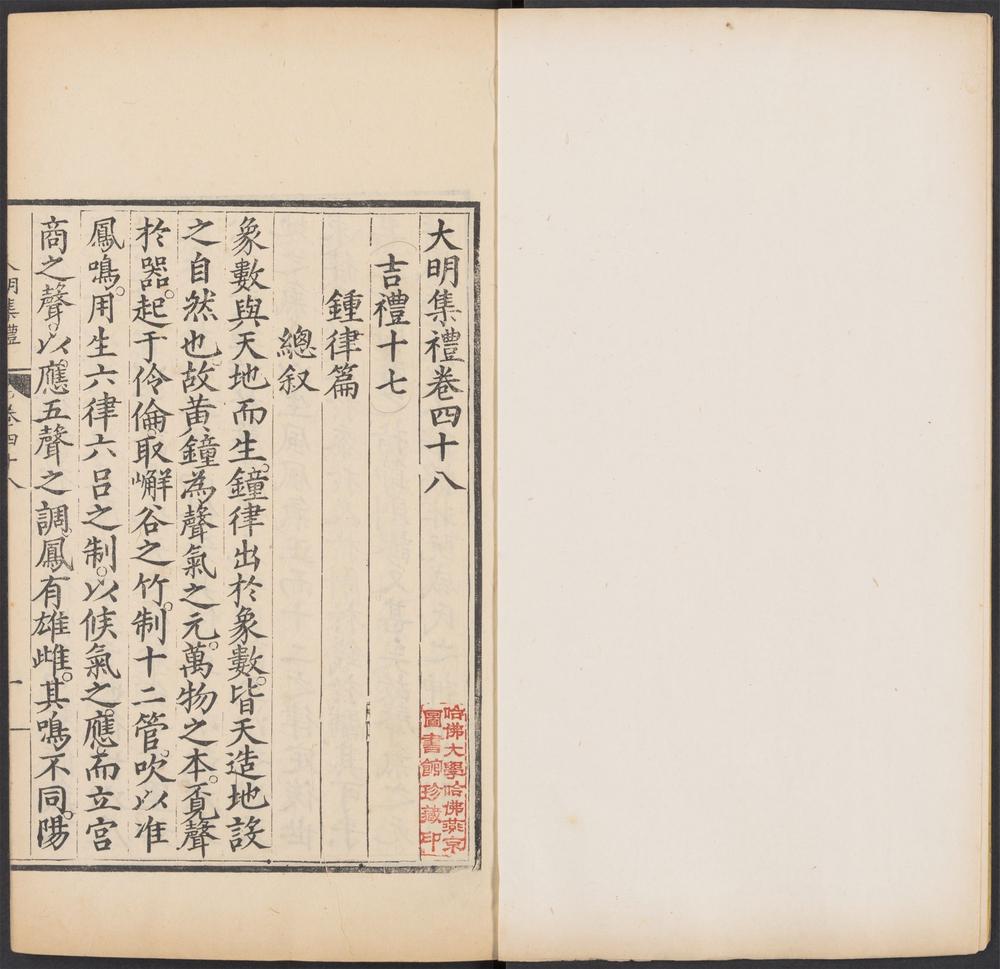 大明集禮卷四十八
吉禮十七
鍾律篇
總叙
象數與天地而生。鐘律出於象數。皆天造地設
之自然也。故黃鐘為聲氣之元。萬物之本。覔聲
於器。起于伶倫。取嶰谷之竹。制十二管。吹以准
鳳鳴。用生六律六呂之制。以候氣之應。而立宮
商之聲。以應五聲之調。鳳有雄雌。其鳴不同。陽
明集禮
卷四十八
一
哈佛大學哈佛燕京
圖書館珍藏印